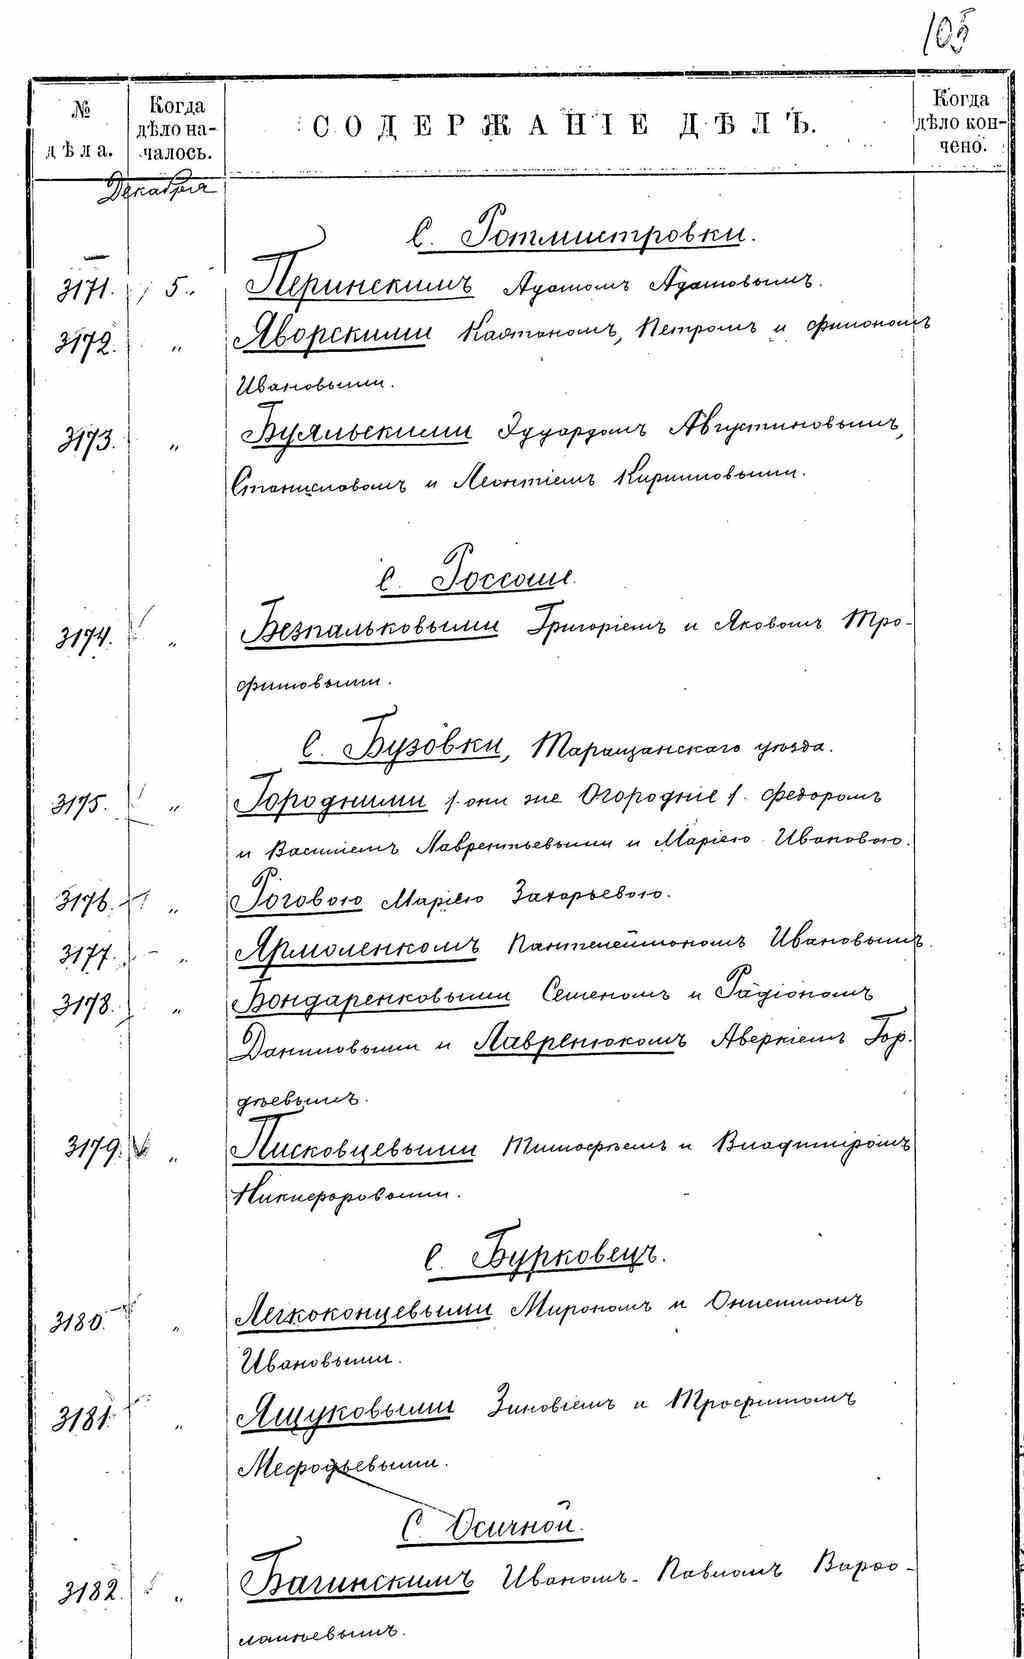 105
№ дѣла. Когда дѣло началось. СОДЕРЖАНІЕ ДѢЛЪ. Когда дѣло кончено.
Декабря
С. Ротмистровки.
3171. 5. Перинскимъ Адамомъ Адамовымъ.
3172. " Яворскими Каэтаномъ, Петромъ и Филономъ
Ивановыми.
3173. " Буяльскими Эдуардомъ Августиновымъ,
Станиславомъ и Леонтіемъ Кирилловыми.
С. Россоше.
3174. " Безпальковыми Григоріемъ и Яковомъ Тро-
фимовыми.
С. Бузовки, Таращанскаго уѣзда.
3175. " Городними /. они же Огородніе /. Федоромъ
и Василіемъ Лаврентьевыми и Маріею Ивановою.
3176. " Роговою Маріею Захарьевою.
3177. " Ярмоленкомъ Пантелеймономъ Ивановымъ.
3178. " Бондаренковыми Семеномъ и Радіономъ
Даниловыми и Лавренюкомъ Аверкіемъ Гор-
дѣевымъ.
3179. " Писковцевыми Тимофѣемъ и Владиміромъ
Никифоровыми.
С. Бурковецъ.
3180. " Легкоконцевыми Мирономъ и Онисимомъ
Ивановыми.
3181. " Ящуковыми Зиновіемъ и Трофимомъ
Мефодьевыми.
С. Осичной.
3182. " Багинскимъ Иваномъ-Павломъ Варфо-
ломѣевымъ.